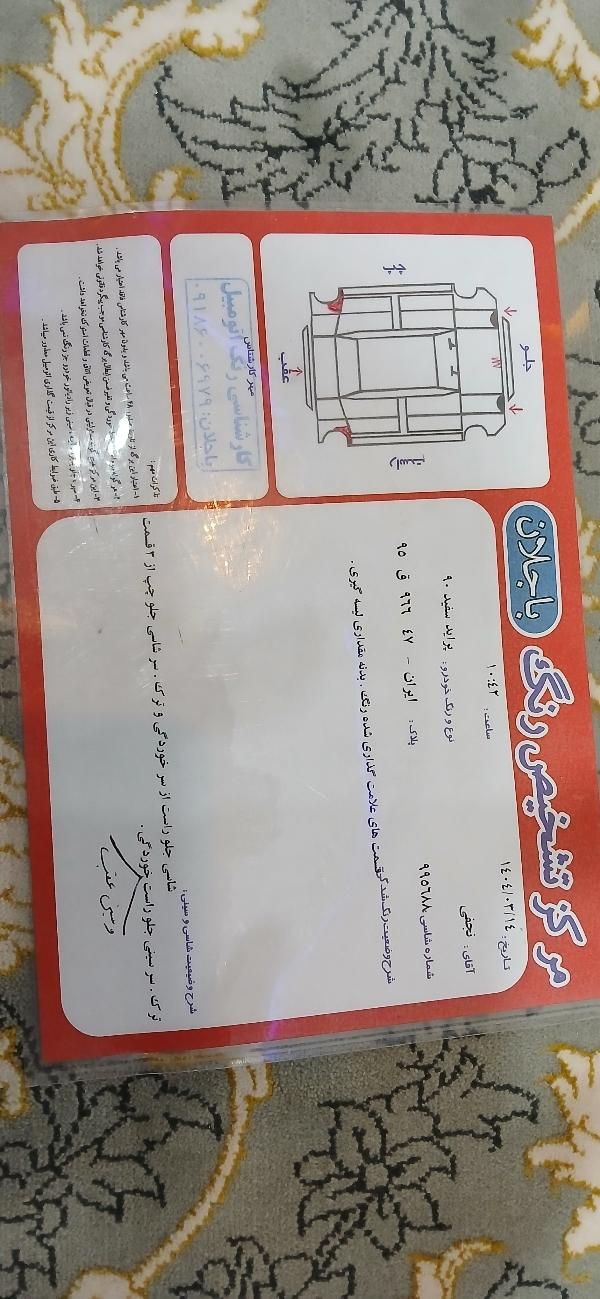 مرکز تشخیص رنگ باجلان
تاریخ: ۱۴۰۴/۰۳/۱۴
ساعت: ۱۰:۴۲
آقای: نجفی
نوع و رنگ خودرو: پراید سفید ۹۰
شماره شاسی: ۹۹۵۶۸۸
پلاک: ایران - ۴۷ ۹۶۶ ق ۹۵
شرح وضعیت رنگ شدگی
قسمت های علامت گذاری شده رنگ . بدنه مقداری لیسه گیری .
شرح وضعیت شاسی و سینی:
شاسی جلو راست از سر خوردگی و ترک . سر شاسی جلو چپ از ۳ قسمت
ترک . سر سینی جلو راست خوردگی .
و سینی عقب
جلو
عقب
مهر کارشناس
کارشناسی رنگ اتومبیل
باجلان: ۰۹۱۸۶۰۰۶۹۷۹
تذکرات مهم: